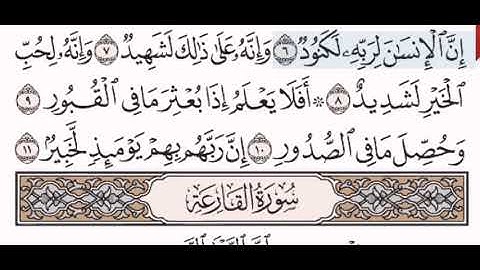 إِنَّ ٱلْإِنسَٰنَ لِرَبِّهِۦ لَكَنُودٌ ٦ وَإِنَّهُۥ عَلَىٰ ذَٰلِكَ لَشَهِيدٌ ٧ وَإِنَّهُۥ لِحُبِّ
ٱلْخَيْرِ لَشَدِيدٌ ٨ ۞ أَفَلَا يَعْلَمُ إِذَا بُعْثِرَ مَا فِى ٱلْقُبُورِ ٩
وَحُصِّلَ مَا فِى ٱلصُّدُورِ ١٠ إِنَّ رَبَّهُم بِهِمْ يَوْمَئِذٍ لَّخَبِيرٌۢ ١١
سُورَةُ القَارِعَةِ